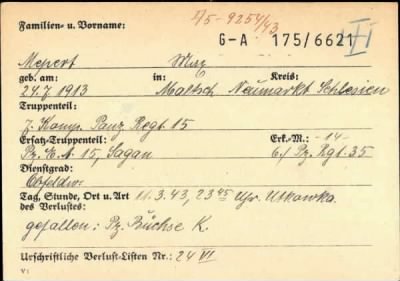 Familien- u. Vorname:
I/5-9254/43
G-A 175/6621 VI
Meyert Max
geb. am: in: Kreis:
24.7.1913 Maltsch Neumarkt Schlesien
Truppenteil:
7. Komp. Panz. Regt. 15
Ersatz-Truppenteil: Erk.-M.: -14-
Pz. E. A. 15, Sagan 6./ Pz. Rgt. 35
Dienstgrad:
Obfeldw.
Tag, Stunde, Ort u. Art 11.3.43, 23 45 Uhr, Utkowka
des Verlustes:
gefallen: Pz. Büchse K.
Urschriftliche Verlust-Listen Nr.: 24 VI
V 1